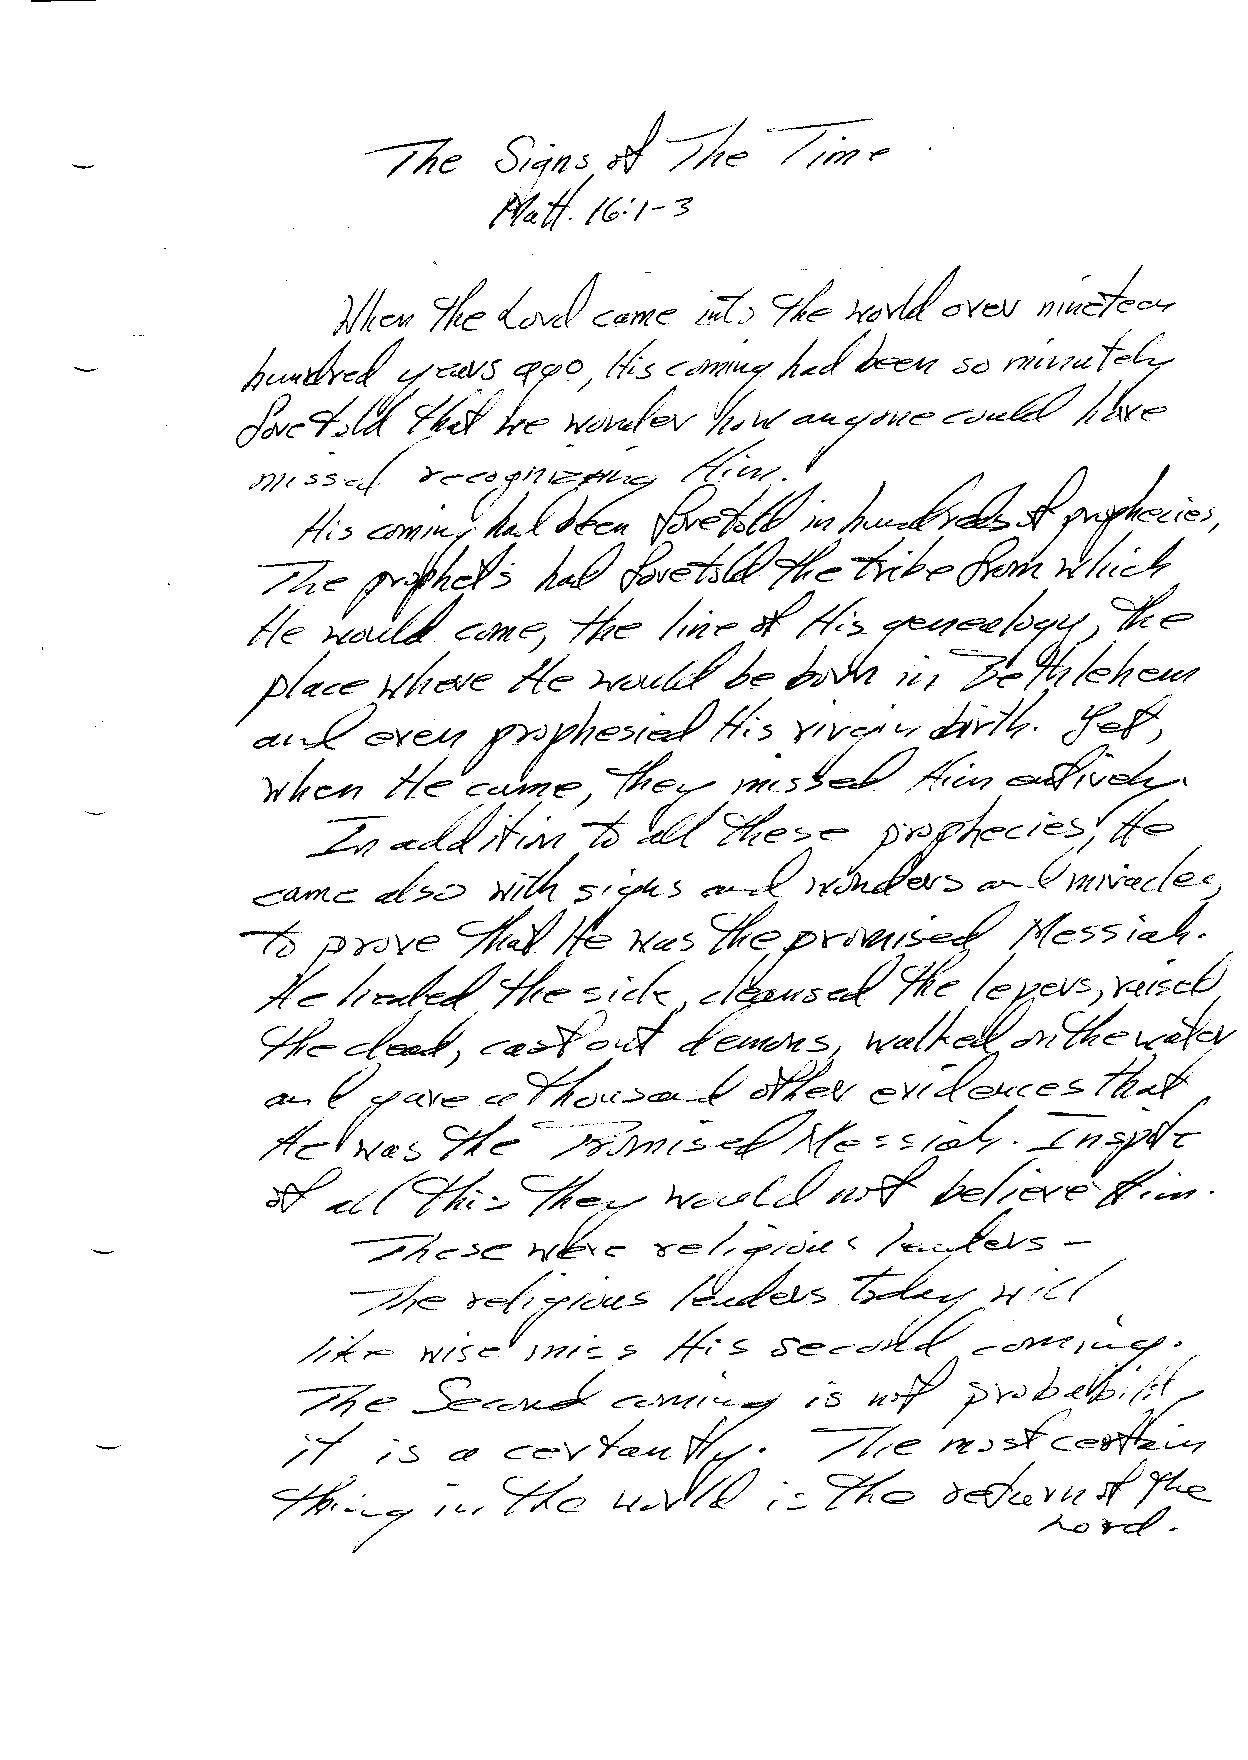 The Signs of The Time
Matt. 16:1-3
When the Lord came into the world over nineteen
hundred years ago, His coming had been so minutely
foretold that we wonder how anyone could have
missed recognizing Him.
His coming had been foretold in hundreds of prophecies,
The prophets had foretold the tribe from which
He would come, the line of His genealogy, the
place where He would be born in Bethlehem
and even prophesied His virgin birth. Yet,
when He came, they missed Him entirely.
In addition to all these prophecies, He
came also with signs and wonders and miracles,
to prove that He was the promised Messiah.
He healed the sick, cleansed the lepers, raised
the dead, cast out demons, walked on the water
and gave a thousand other evidences that
He was the Promised Messiah. Inspite
of all this they would not believe Him.
These were religious leaders -
The religious leaders today will
like wise miss His second coming.
The Second coming is not probability
it is a certantly. The most certain
thing in the world is the return of the
Lord.